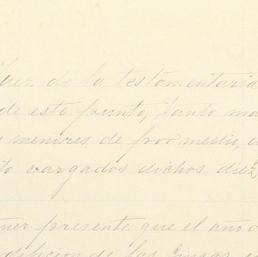 de la testamentaria
de este punto, tanto ma
menores de por medio,
to cargados dichos diez
ner presente que el año d
de las fincas